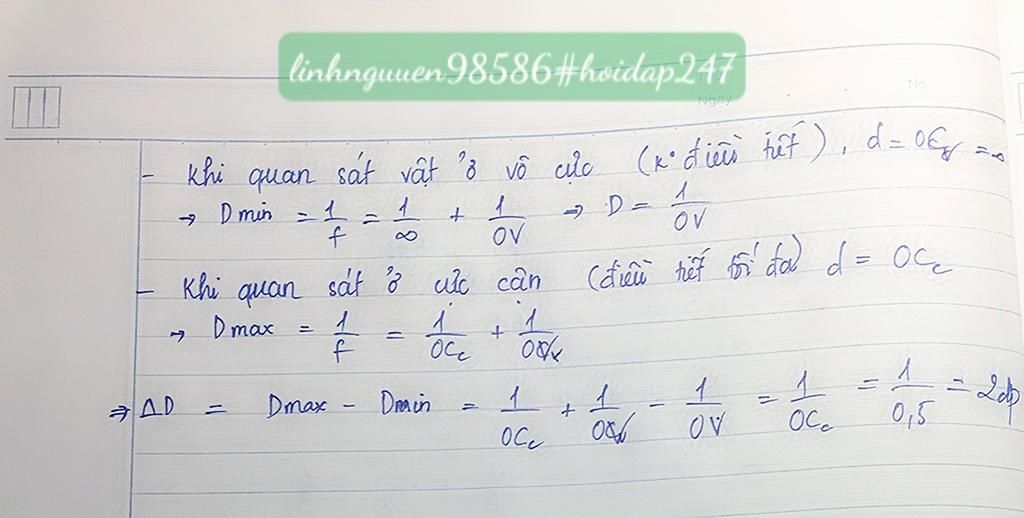 linhnguuen98586#hoidap247
No
Ngày
- Khi quan sát vật ở vô cực (k° điều tiết), d = OCv = ∞
→ Dmin = 1/f = 1/∞ + 1/OV ⇒ D = 1/OV
- Khi quan sát ở cực cận (điều tiết tối đa) d = OCc
→ Dmax = 1/f = 1/OCc + 1/OV
⇒ ΔD = Dmax - Dmin = 1/OCc + 1/OV - 1/OV = 1/OCc = 1/0,5 = 2dp